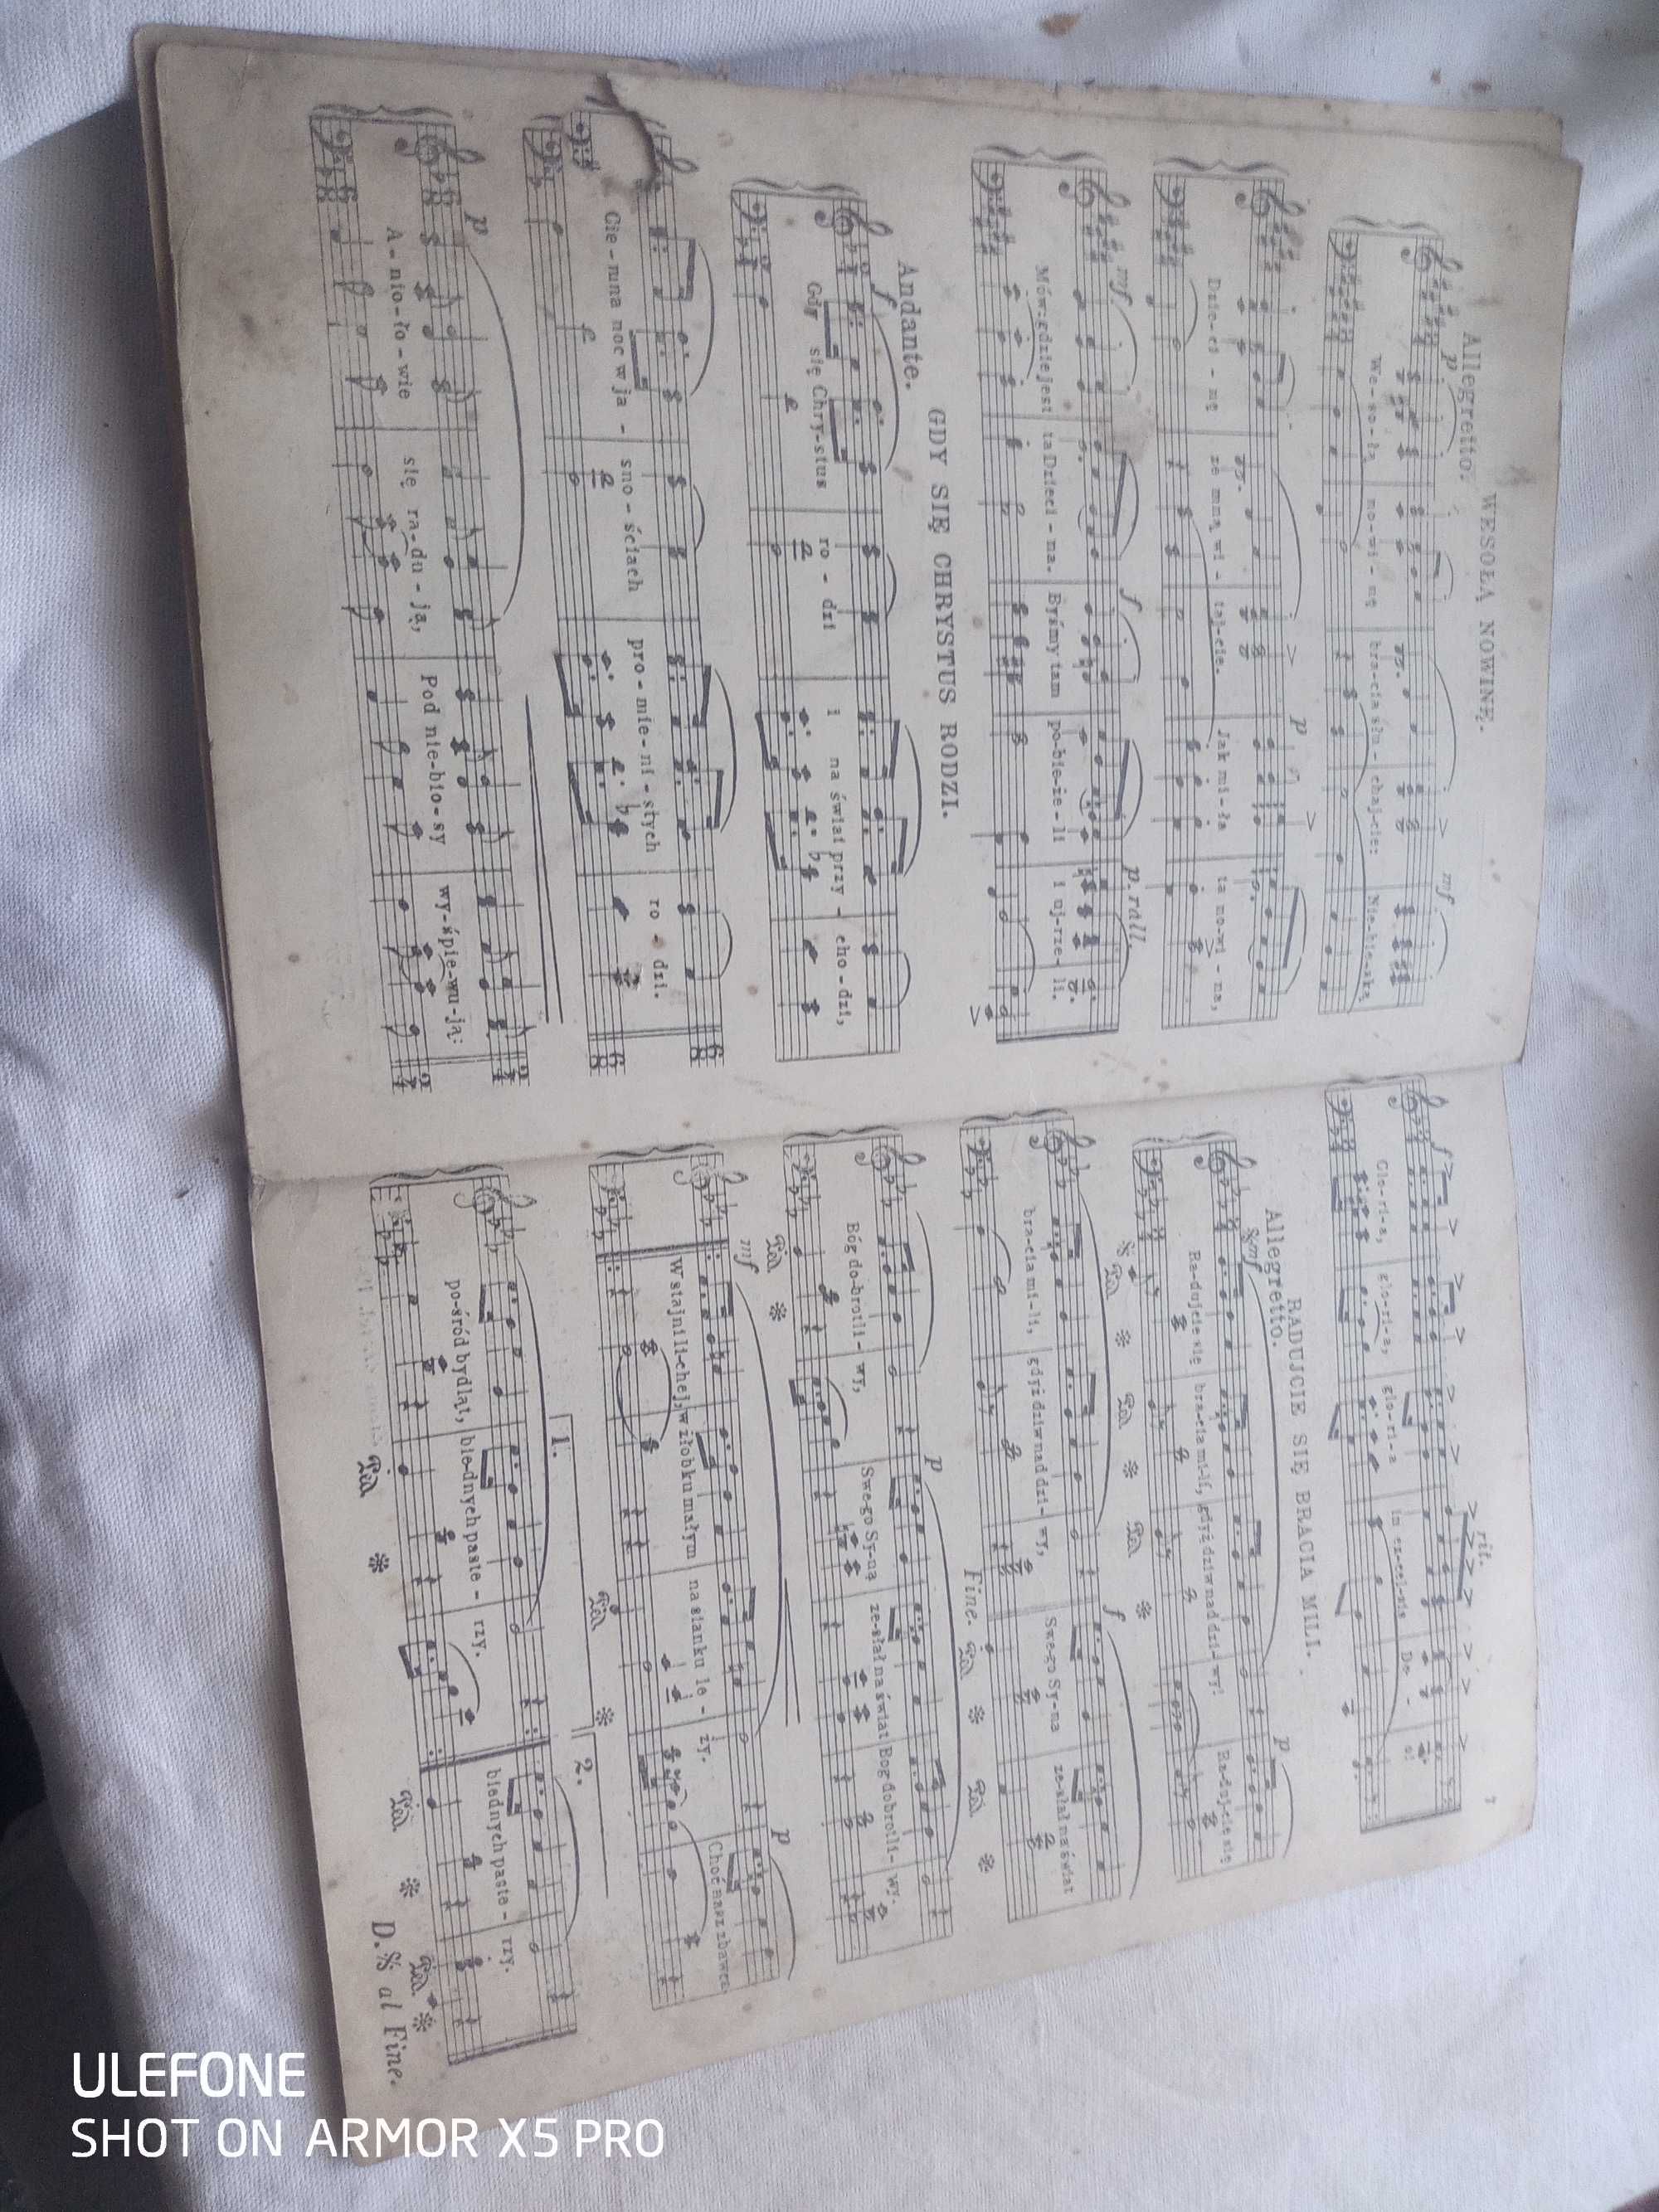 WESOŁĄ NOWINĘ.
Allegretto.
p mf
We-so-łą no-wi-nę bra-cia słu-chaj-cie: Nie-bie-ską
p
Dzie-ci-nę ze mną wi-taj-cie. Jak mi-ła ta no-wi-na,
mf f p. rall.
Mów: gdzie jest ta Dzieci-na. Byśmy tam po-bie-że-li i uj-rze-li.
GDY SIĘ CHRYSTUS RODZI.
Andante.
f
Gdy się Chry-stus ro-dzi i na świat przy-cho-dzi,
Cie-mna noc w ja-sno-ściach pro-mie-ni-stych ro-dzi.
p
A-nio-ło-wie się ra-du-ją, Pod nie-bio-sy wy-śpie-wu-ją:
7
f rit.
Glo-ri-a, glo-ri-a, glo-ri-a in ex-cel-sis De-o!
RADUJCIE SIĘ BRACIA MILI.
Allegretto.
mf p
Ra-dujcie się bra-cia mi-li, gdyż dziw nad dzi-wy! Ra-duj-cie się
Ped. Ped. Ped.
f
bra-cia mi-li, gdyż dziw nad dzi-wy, Swe-go Sy-na ze-słał na świat
Fine. Ped. Ped.
p
Bóg do-brotli-wy, Swe-go Sy-ną ze-słał na świat Bog dobrotli-wy.
Ped.
mf p
W stajni li-chej, w żłobku małym na sianku le-ży. Choć nasz zbawca
Ped.
1. 2.
po-śród bydląt, bie-dnych paste-rzy. biednych paste-rzy.
Ped. Ped. Ped.
D.S. al Fine.
ULEFONE
SHOT ON ARMOR X5 PRO